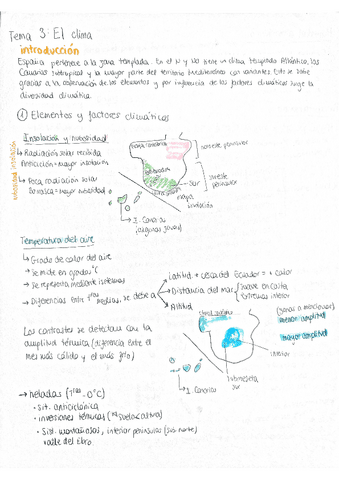 Tema 3: El clima
introducción
España pertenece a la zona templada. En el N y NO tiene un clima templado Atlántico, las
Canarias subtropical y la mayor parte del territorio mediterráneo con variantes. Esto se debe
gracias a la ordenación de los elementos y por influencia de los factores climáticos surge la
diversidad climática.
① Elementos y factores climáticos
Insolación y nubosidad
Radiación solar recibida
Anticiclón = mayor insolación
Poca radiación solar
Borrasca = mayor nubosidad
noroeste peninsular
sureste
peninsular
Sur
mayor
insolación
I. Canarias
(algunas zonas)
Temperatura del aire
Grado de calor del aire
Se mide en grados °C
se representa mediante isotermas
Diferencias entre Tras medias, se debe a
Latitud + cerca del Ecuador = + calor
Distancia del mar
suave en costa
extremas interior
Altitud
Los contrastes se detectan con la
amplitud térmica (diferencia entre el
mes más cálido y el más frío)
menor amplitud
mayor amplitud
interior
I. Canarias
Submeseta
sur
→ heladas (Tras - 0°C)
• sit. anticiclónica
• inversiones térmicas
• Sist. montañosos, interior península (sub. norte)
valle del Ebro.